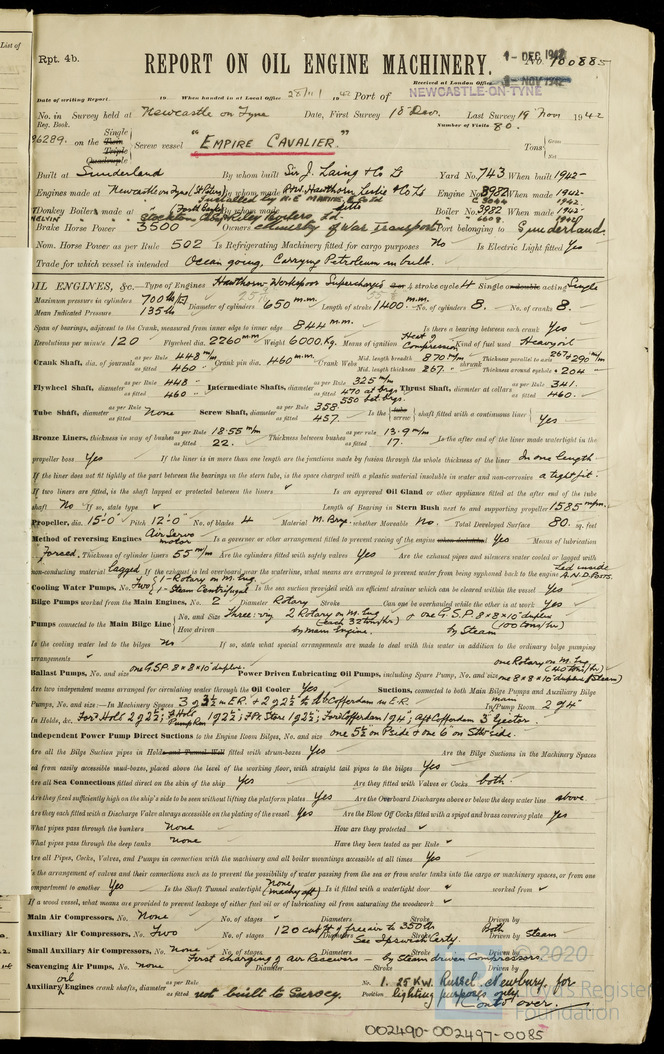 List of
Rpt. 4b.
REPORT ON OIL ENGINE MACHINERY.
1 - DEC 1942
No. 100885
Received at London Office
NOV 1942
Date of writing Report 19 When handed in at Local Office 28/11/ 1942 Port of NEWCASTLE-ON-TYNE
No. in Survey held at Newcastle on Tyne Date, First Survey 18 Dec. Last Survey 19 Nov 1942
Reg. Book. Number of Visits 80.
96289. on the Single Twin Triple Quadruple Screw vessel "EMPIRE CAVALIER." Tons Gross Net
Built at Sunderland By whom built Sir J. Laing & Co Ld Yard No. 743 When built 1942
Engines made at Newcastle on Tyne (St Peters) By whom made R.W. Hawthorn Leslie & Co Ld Engine No. 3982 When made 1942
Installed by N.E. MARINE
Donkey Boilers made at By whom made ditto Boiler No. 3982 When made 1942
Brake Horse Power 3500 Owners Ministry of War Transport Port belonging to Sunderland
Nom. Horse Power as per Rule 502 Is Refrigerating Machinery fitted for cargo purposes No Is Electric Light fitted Yes
Trade for which vessel is intended Ocean going, Carrying Petroleum in bulk.
OIL ENGINES, &c.—Type of Engines Hawthorn-Werkspoor Supercharge 2 or 4 stroke cycle 4 Single or double acting Single
Maximum pressure in cylinders 700 lb/□" Diameter of cylinders 650 m.m. Length of stroke 1400 m.m. No. of cylinders 8. No. of cranks 8.
Mean Indicated Pressure 135 lb
Span of bearings, adjacent to the Crank, measured from inner edge to inner edge 844 m.m. Is there a bearing between each crank Yes
Revolutions per minute 120 Flywheel dia. 2260 m.m. Weight 6000 Kg. Means of ignition Heat of Compression Kind of fuel used Heavy oil
Crank Shaft, dia. of journals as per Rule 448 m/m as fitted 460 Crank pin dia. 460 m.m. Crank Webs Mid. length breadth 870 m/m Mid. length thickness 267 shrunk Thickness parallel to axis 267 & 290 m/m Thickness around eyehole 204
Flywheel Shaft, diameter as per Rule 448 as fitted 460 Intermediate Shafts, diameter as per Rule 325 m/m as fitted 470 at brgs 550 bet. brgs Thrust Shaft, diameter at collars as per Rule 341 as fitted 460.
Tube Shaft, diameter as per Rule as fitted None Screw Shaft, diameter as per Rule 358 as fitted 457. Is the tube screw shaft fitted with a continuous liner Yes
Bronze Liners, thickness in way of bushes as per Rule 18.55 m/m as fitted 22. Thickness between bushes as per rule 13.9 m/m as fitted 17. Is the after end of the liner made watertight in the
propeller boss Yes If the liner is in more than one length are the junctions made by fusion through the whole thickness of the liner In one length
If the liner does not fit tightly at the part between the bearings in the stern tube, is the space charged with a plastic material insoluble in water and non-corrosive a tight fit.
If two liners are fitted, is the shaft lapped or protected between the liners ✓ Is an approved Oil Gland or other appliance fitted at the after end of the tube
shaft No If so, state type ✓ Length of Bearing in Stern Bush next to and supporting propeller 1585 m/m.
Propeller, dia. 15'-0" Pitch 12'-0" No. of blades 4 Material M. Brze whether Moveable No. Total Developed Surface 80 sq. feet
Method of reversing Engines Air Servo motor Is a governor or other arrangement fitted to prevent racing of the engine when declutched Yes Means of lubrication
Forced. Thickness of cylinder liners 55 m/m Are the cylinders fitted with safety valves Yes Are the exhaust pipes and silencers water cooled or lagged with
non-conducting material lagged If the exhaust is led overboard near the waterline, what means are arranged to prevent water from being syphoned back to the engine Led inside A.N.D. Posts.
Cooling Water Pumps, No. Two 1-Rotary on M. Eng. 1-Steam Centrifugal Is the sea suction provided with an efficient strainer which can be cleared within the vessel Yes
Bilge Pumps worked from the Main Engines, No. 2 Diameter Rotary Stroke Can one be overhauled while the other is at work Yes
Pumps connected to the Main Bilge Line No. and Size Three: viz 2 Rotary on M. Eng (each 32 tons/hr) & one G.S.P. 8 x 8 x 10" duplex (100 tons/hr)
How driven by main Engine. by Steam
Is the cooling water led to the bilges No If so, state what special arrangements are made to deal with this water in addition to the ordinary bilge pumping
arrangements ✓
Ballast Pumps, No. and size one G.S.P. 8 x 8 x 10" duplex. Power Driven Lubricating Oil Pumps, including Spare Pump, No. and size one Rotary on M. Eng. (40 tons/hr) one 8 x 8 x 10" duplex (Steam)
Are two independent means arranged for circulating water through the Oil Cooler Yes Suctions, connected to both Main Bilge Pumps and Auxiliary Bilge
Pumps, No. and size:—In Machinery Spaces 3 @ 3½" in E.R. & 2 @ 2½" to aft Cofferdam in E.R. In main Pump Room 2 @ 4"
In Holds, &c. Ford Hold 2 @ 2½"; F. Hold Pump Rm 1 @ 2½"; F. Pr. Store 1 @ 2½"; Ford Cofferdam 1 @ 4", Aft Cofferdam 3" Ejector.
Independent Power Pump Direct Suctions to the Engine Room Bilges, No. and size one 5½" on P side & one 6" on Stbd side.
Are all the Bilge Suction pipes in Holds and Tunnel Well fitted with strum-boxes Yes Are the Bilge Suctions in the Machinery Spaces
led from easily accessible mud-boxes, placed above the level of the working floor, with straight tail pipes to the bilges Yes
Are all Sea Connections fitted direct on the skin of the ship Yes Are they fitted with Valves or Cocks both.
Are they fixed sufficiently high on the ship's side to be seen without lifting the platform plates Yes Are the Overboard Discharges above or below the deep water line above
Are they each fitted with a Discharge Valve always accessible on the plating of the vessel Yes Are the Blow Off Cocks fitted with a spigot and brass covering plate Yes
What pipes pass through the bunkers None How are they protected ✓
What pipes pass through the deep tanks None Have they been tested as per Rule ✓
Are all Pipes, Cocks, Valves, and Pumps in connection with the machinery and all boiler mountings accessible at all times Yes
Is the arrangement of valves and their connections such as to prevent the possibility of water passing from the sea or from water tanks into the cargo or machinery spaces, or from one
compartment to another Yes Is the Shaft Tunnel watertight None, (Machy aft) Is it fitted with a watertight door " worked from ✓
If a wood vessel, what means are provided to prevent leakage of either fuel oil or of lubricating oil from saturating the woodwork ✓
Main Air Compressors, No. None No. of stages ✓ Diameters Stroke Driven by
Auxiliary Air Compressors, No. Two No. of stages 120 cub ft of free air to 350 lb Diameters See Ipswich Certy. Stroke Driven by Both Steam
Small Auxiliary Air Compressors, No. None No. of stages Diameters Stroke Driven by
First charging of Air Reservers - by Steam driven Compressors.
Scavenging Air Pumps, No. None Diameter Stroke Driven by
Auxiliary oil Engines crank shafts, diameter as per Rule as fitted not built to Survey. No. 1. 25 K.W. Russel Newbury, for Position lighting purposes only
Contd over.
© 2020
Lloyd's Register
Foundation
002490-002497-0085